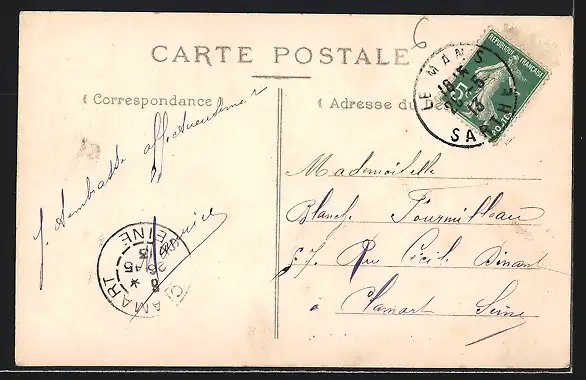 CARTE POSTALE
Correspondance
Adresse du
6
RÉPUBLIQUE FRANÇAISE
5
POSTES
LE MANS
SARTHE
J. Embrasse affectueusement
Maurice
CLAMART
SEINE
Mademoiselle
Blanche Fournilleau
57 Rue Cécile Dinant
a Clamart Seine